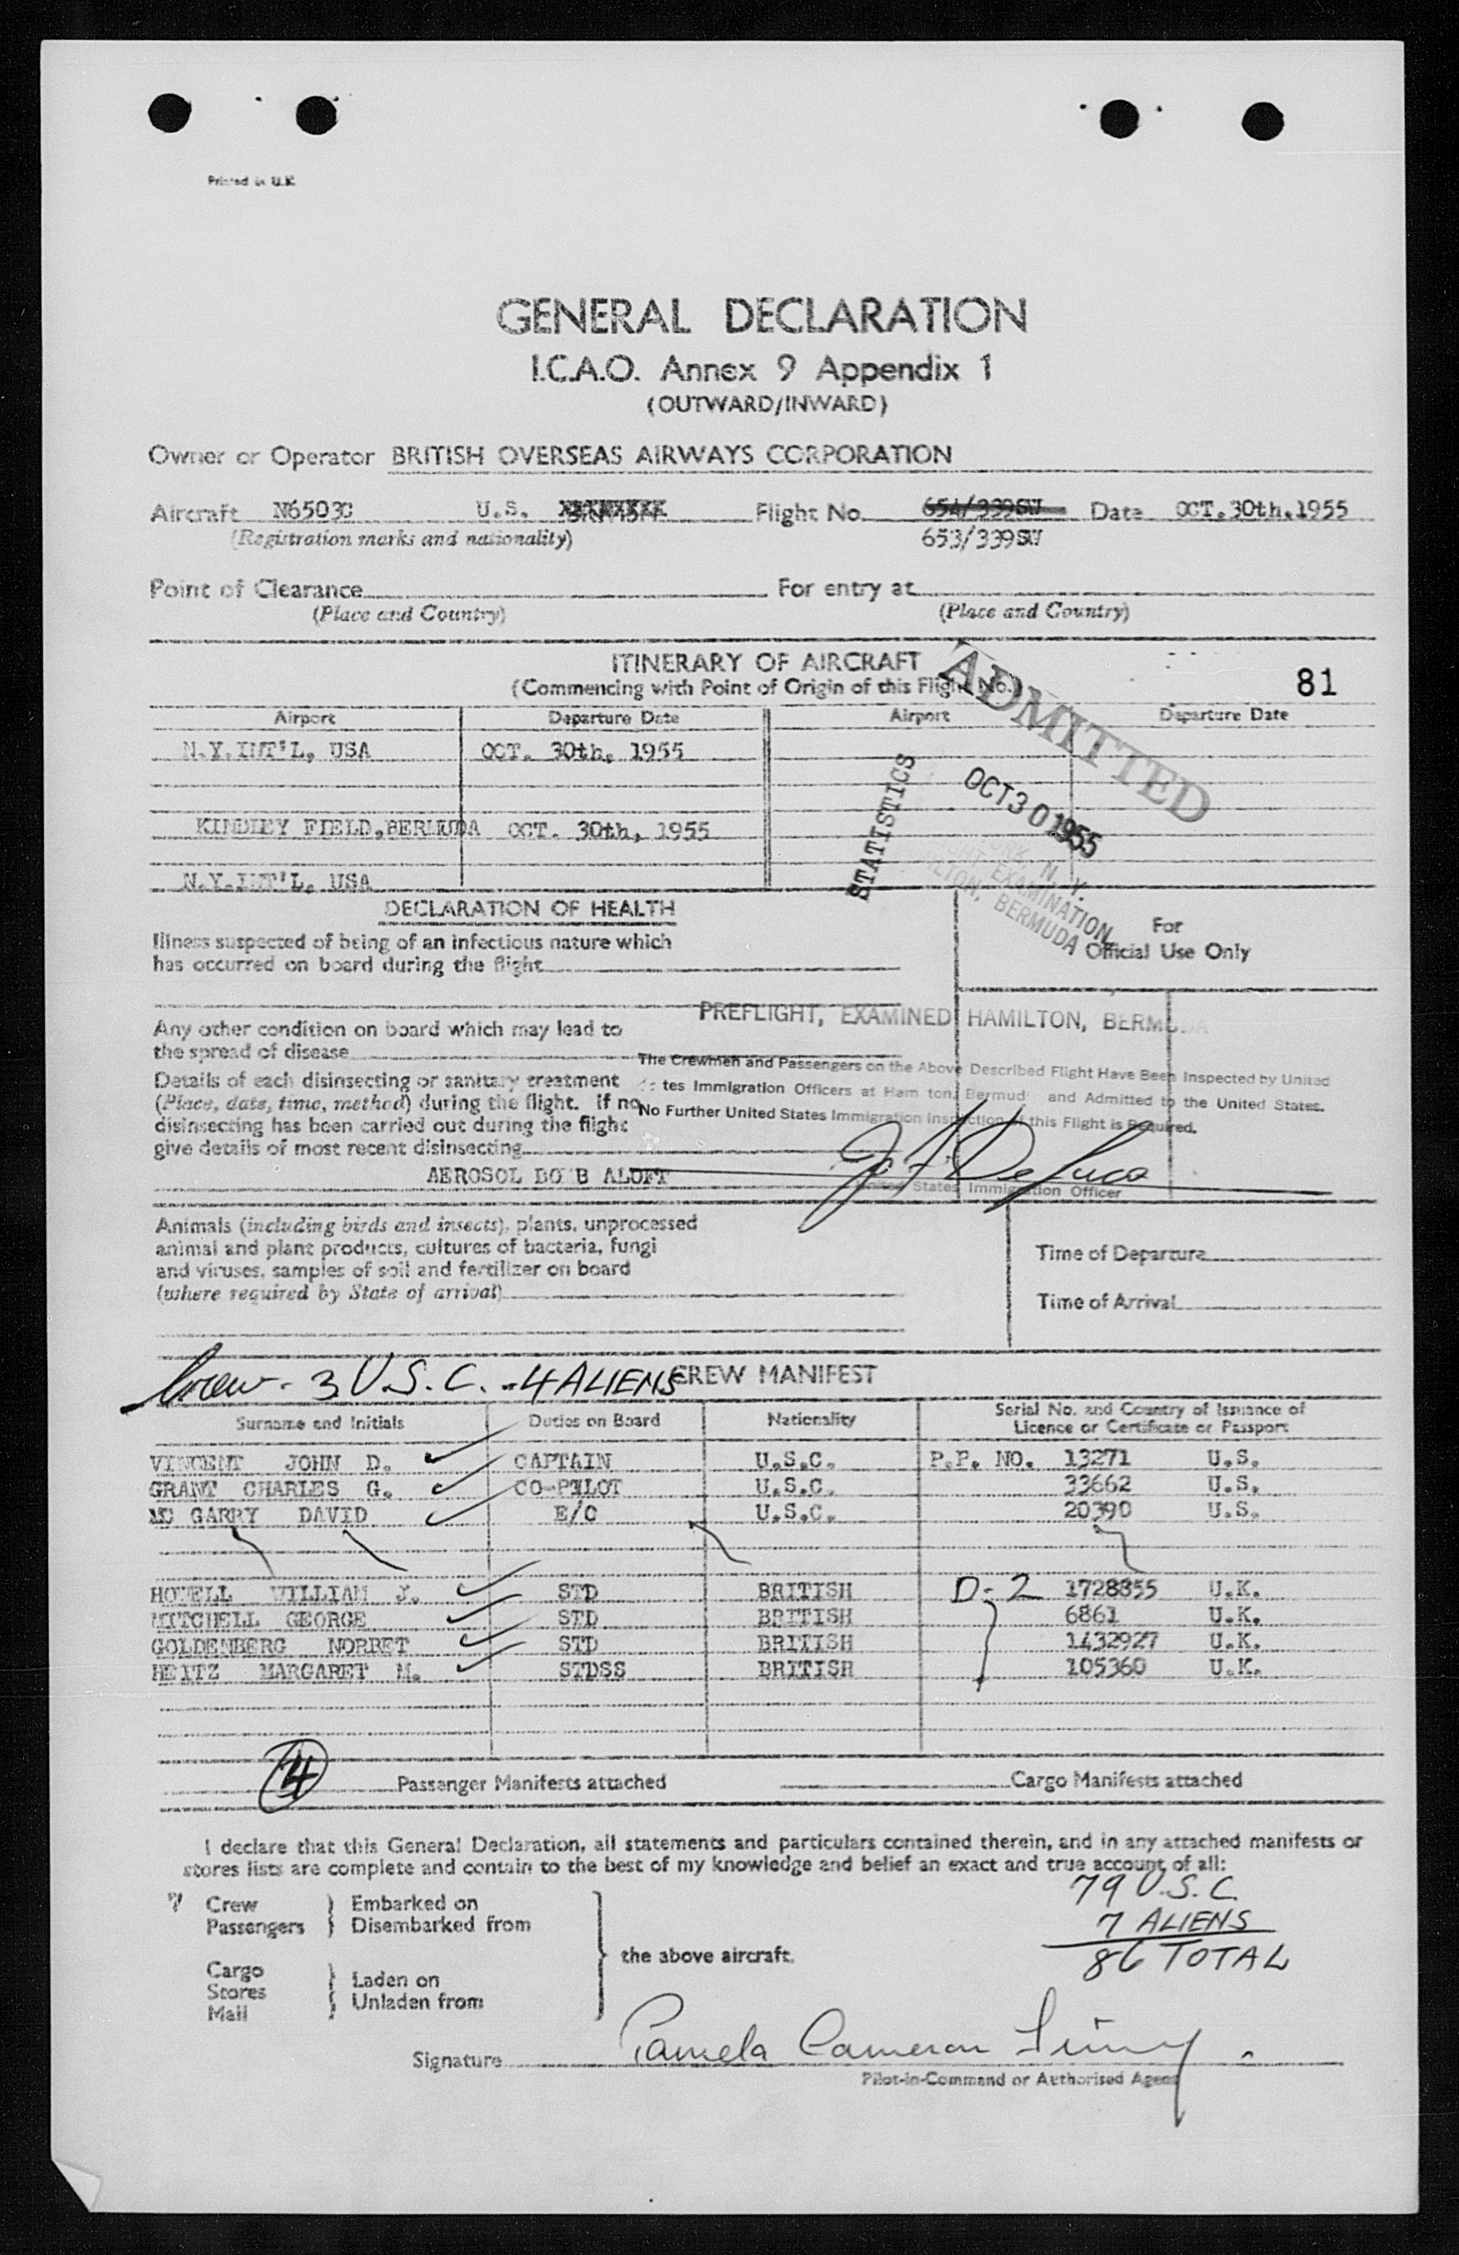 Printed in U.K.
GENERAL DECLARATION
I.C.A.O. Annex 9 Appendix 1
(OUTWARD/INWARD)
Owner or Operator BRITISH OVERSEAS AIRWAYS CORPORATION
Aircraft N6503C U.S. Flight No. 654/339SW Date OCT.30th,1955
(Registration marks and nationality) 653/339SW
Point of Clearance For entry at
(Place and Country) (Place and Country)
ITINERARY OF AIRCRAFT
(Commencing with Point of Origin of this Flight No.) 81
Airport Departure Date Airport Departure Date
N.Y.INT'L, USA OCT. 30th, 1955
KINDLEY FIELD,BERMUDA OCT. 30th, 1955
N.Y.INT'L, USA
ADMITTED
OCT 30 1955
STATISTICS
N. Y.
EXAMINATION
HAMILTON, BERMUDA
DECLARATION OF HEALTH
For
Official Use Only
Illness suspected of being of an infectious nature which
has occurred on board during the flight
PREFLIGHT, EXAMINED HAMILTON, BERMUDA
Any other condition on board which may lead to
the spread of disease
The Crewmen and Passengers on the Above Described Flight Have Been Inspected by United
tes Immigration Officers at Ham ton, Bermud and Admitted to the United States.
No Further United States Immigration Inspection of this Flight is Required.
Details of each disinsecting or sanitary treatment
(Place, date, time, method) during the flight. If no
disinsecting has been carried out during the flight
give details of most recent disinsecting
AEROSOL BO B ALOFT
United States Immigration Officer
Animals (including birds and insects), plants, unprocessed
animal and plant products, cultures of bacteria, fungi
and viruses, samples of soil and fertilizer on board
(where required by State of arrival)
Time of Departure
Time of Arrival
Crew - 3 U.S.C. - 4 ALIENS CREW MANIFEST
Surname and Initials Duties on Board Nationality Serial No. and Country of Issuance of
Licence or Certificate or Passport
VINCENT JOHN D. CAPTAIN U.S.C. P.P. NO. 13271 U.S.
GRANT CHARLES G. CO-PILOT U.S.C. 33662 U.S.
MC GARRY DAVID E/O U.S.C. 20390 U.S.
HOWELL WILLIAM J. STD BRITISH D-2 1728855 U.K.
MITCHELL GEORGE STD BRITISH 6861 U.K.
GOLDENBERG NORBET STD BRITISH 1432927 U.K.
HEITZ MARGARET M. STDSS BRITISH 105360 U.K.
4 Passenger Manifests attached Cargo Manifests attached
I declare that this General Declaration, all statements and particulars contained therein, and in any attached manifests or
stores lists are complete and contain to the best of my knowledge and belief an exact and true account of all:
7 Crew } Embarked on
Passengers } Disembarked from
Cargo
Stores } Laden on
Mail } Unladen from
the above aircraft.
79 U.S.C.
7 ALIENS
86 TOTAL
Signature Pamela Cameron
Pilot-in-Command or Authorised Agent